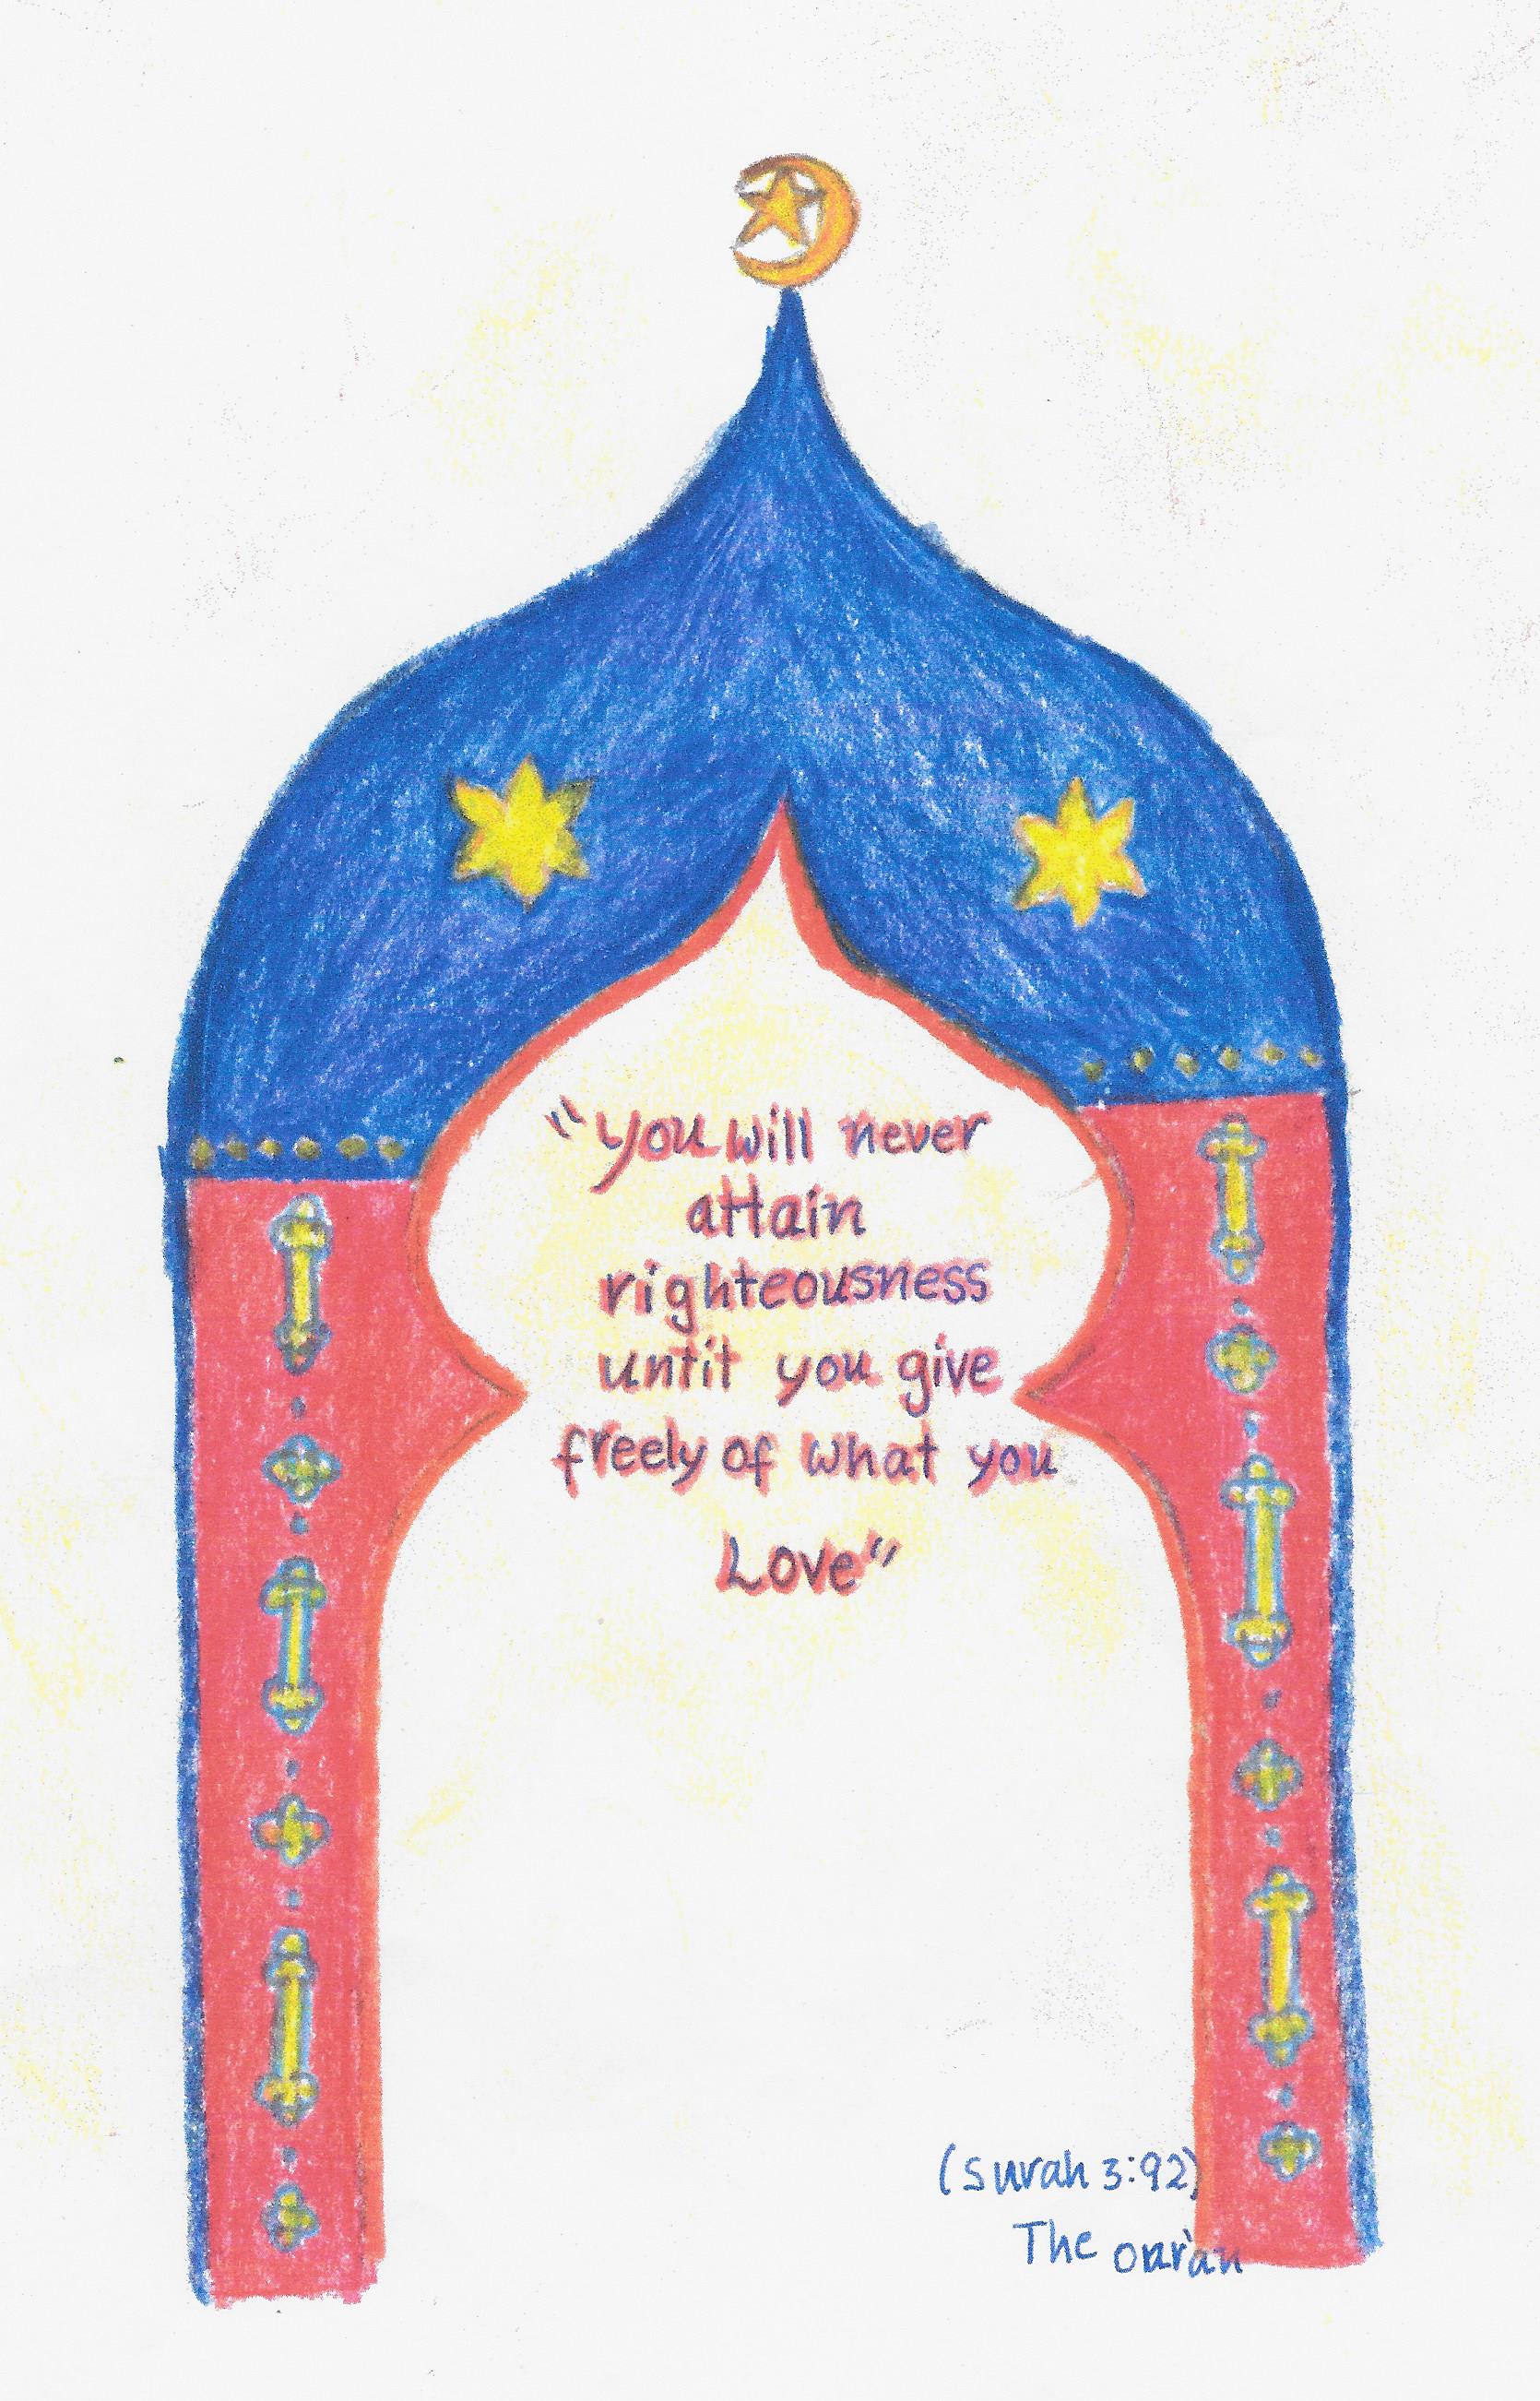 "You will never
attain
righteousness
until you give
freely of what you
Love"
(surah 3:92)
The Qur'an